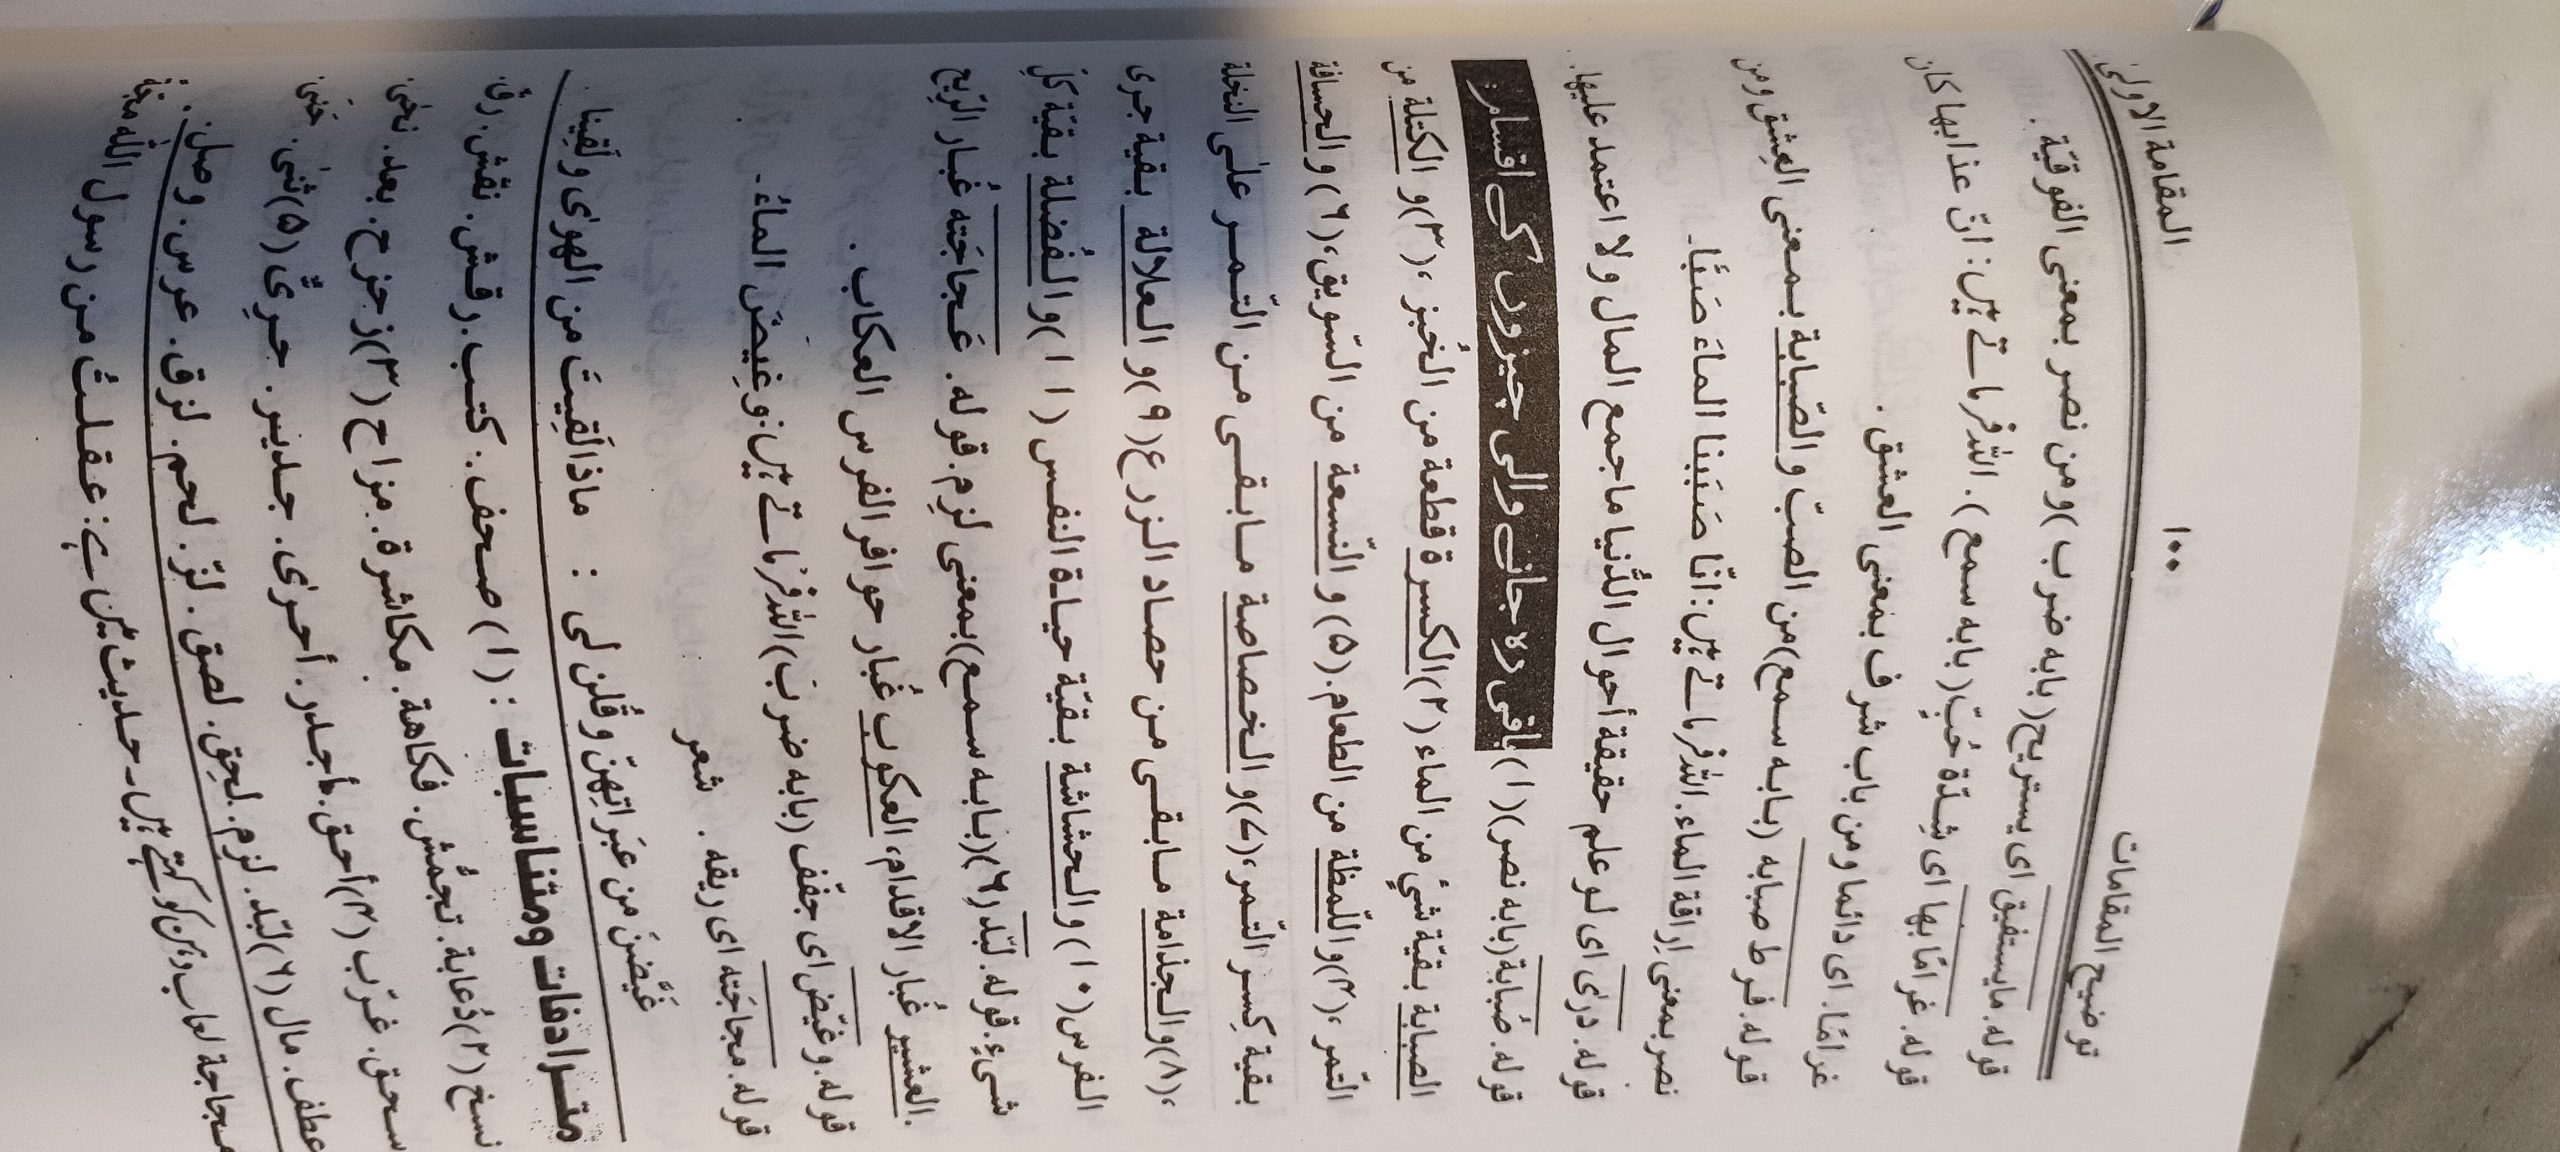 توضیح المقامات ۱۰۰ المقامة الاولیٰ
قوله. مایستفیق ای یستریح (بابه ضرب) ومن نصر بمعنی الفوقیّة.
قوله. غرامًا بها ای شِدّة حُبٍّ (بابه سمع). اللہ فرماتے ہیں: انّ عذابها کان
غرامًا. ای دائما ومن باب شرف بمعنی العشق.
قوله. فرط صبابه (بابه سمع) من الصبّ والصّبابة بمعنی العِشق ومن
نصر بمعنی اِراقة الماء. اللہ فرماتے ہیں: انّا صَبَبنا الماءَ صَبًّا۔
قوله. دریٰ ای لو علم حقیقة أحوال الدُّنیا ما جمع المال ولا اعتمد علیها.
قوله. صُبابة (بابه نصر) باقی رہ جانے والی چیزوں کے اقسام: (۱)
الصبابة بقیّة شیٔ من الماء (۲) الکسرة قطعة من الخُبز، (۳) و الکتلة من
التّمر، (۴) واللّمظة من الطعام. (۵) و النّسعة من السّویق، (۶) والحسافة
بقیة کِسر التّمر، (۷) و الخصاصة مابقی من التّمر علی النخلة
، (۸) والجذامة مابقی من حصاد الزرع (۹) و العلالة بقیة جری
الفرس (۱۰) والحشاشة بقیّة حیاة النفس (۱۱) والفُضلة بقیّة کلِّ
شیءٍ. قوله. لبّد (۶) (بابه سمع) بمعنی لزِم. قوله. عَجاجَته غُبار الرّیح
. العثیر غُبار الاقدام، العکوب غُبار حوافر الفرس العکاب.
قوله. وغیّض ای جفّف (بابه ضربَ) اللہ فرماتے ہیں: وغِیضَ الماءُ۔
قوله. مجاجَته ای ریقه. شعر
غَیَّضنَ من عَبَراتِهِنّ وقُلن لی : ماذا لَقِیتَ من الهوٰی ولَقِینا
مترادفات ومتناسبات : (۱) صحف. کتب. رقش. نقش. رقّ.
نسخ (۲) دُعابة. تجمُّش. فکاهة. مکاشرة. مزاح (۳) زحزح. بعد. نحّی.
سحق. غرّب (۴) أحق. أجدر. أحرٰی. جدیر. حرِیٌّ (۵) ثنیٰ. حَنیٰ.
عطف. مال (۶) لبّد. لزِم. لحِق. لصق. لزّ. لحم. لزق. عرس. وصل.
مجاجة لعاب دہن کو کہتے ہیں۔ حدیث میں ہے: عقلتُ من رسول اللّٰه مجّة